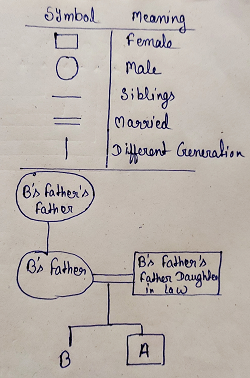 Symbol Meaning
Female
Male
Siblings
Married
Different Generation
B's Father's
Father
B's Father
B's Father's
Father Daughter
in law
B
A